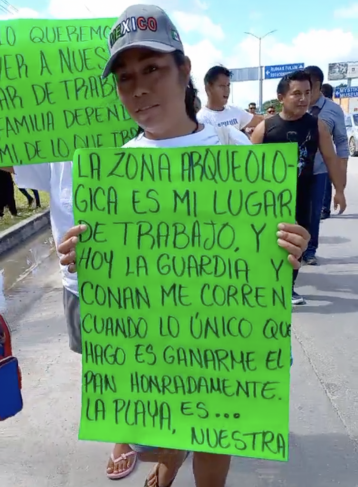 MEXICO
LO QUEREMOS
VER A NUES
AR DE TRABA
FAMILIA DEPEN
MI, DE LO NUTRO
LA ZONA ARQUEOLO-
GICA ES MI LUGAR
DE TRABAJO, Y
HOY LA GUARDIA Y
CONAN ME CORREN
CUANDO LO ÚNICO QU
HAGO ES GANARME EL
PAN HONRADAMENTE.
LA PLAYA, ES...
NUESTRA